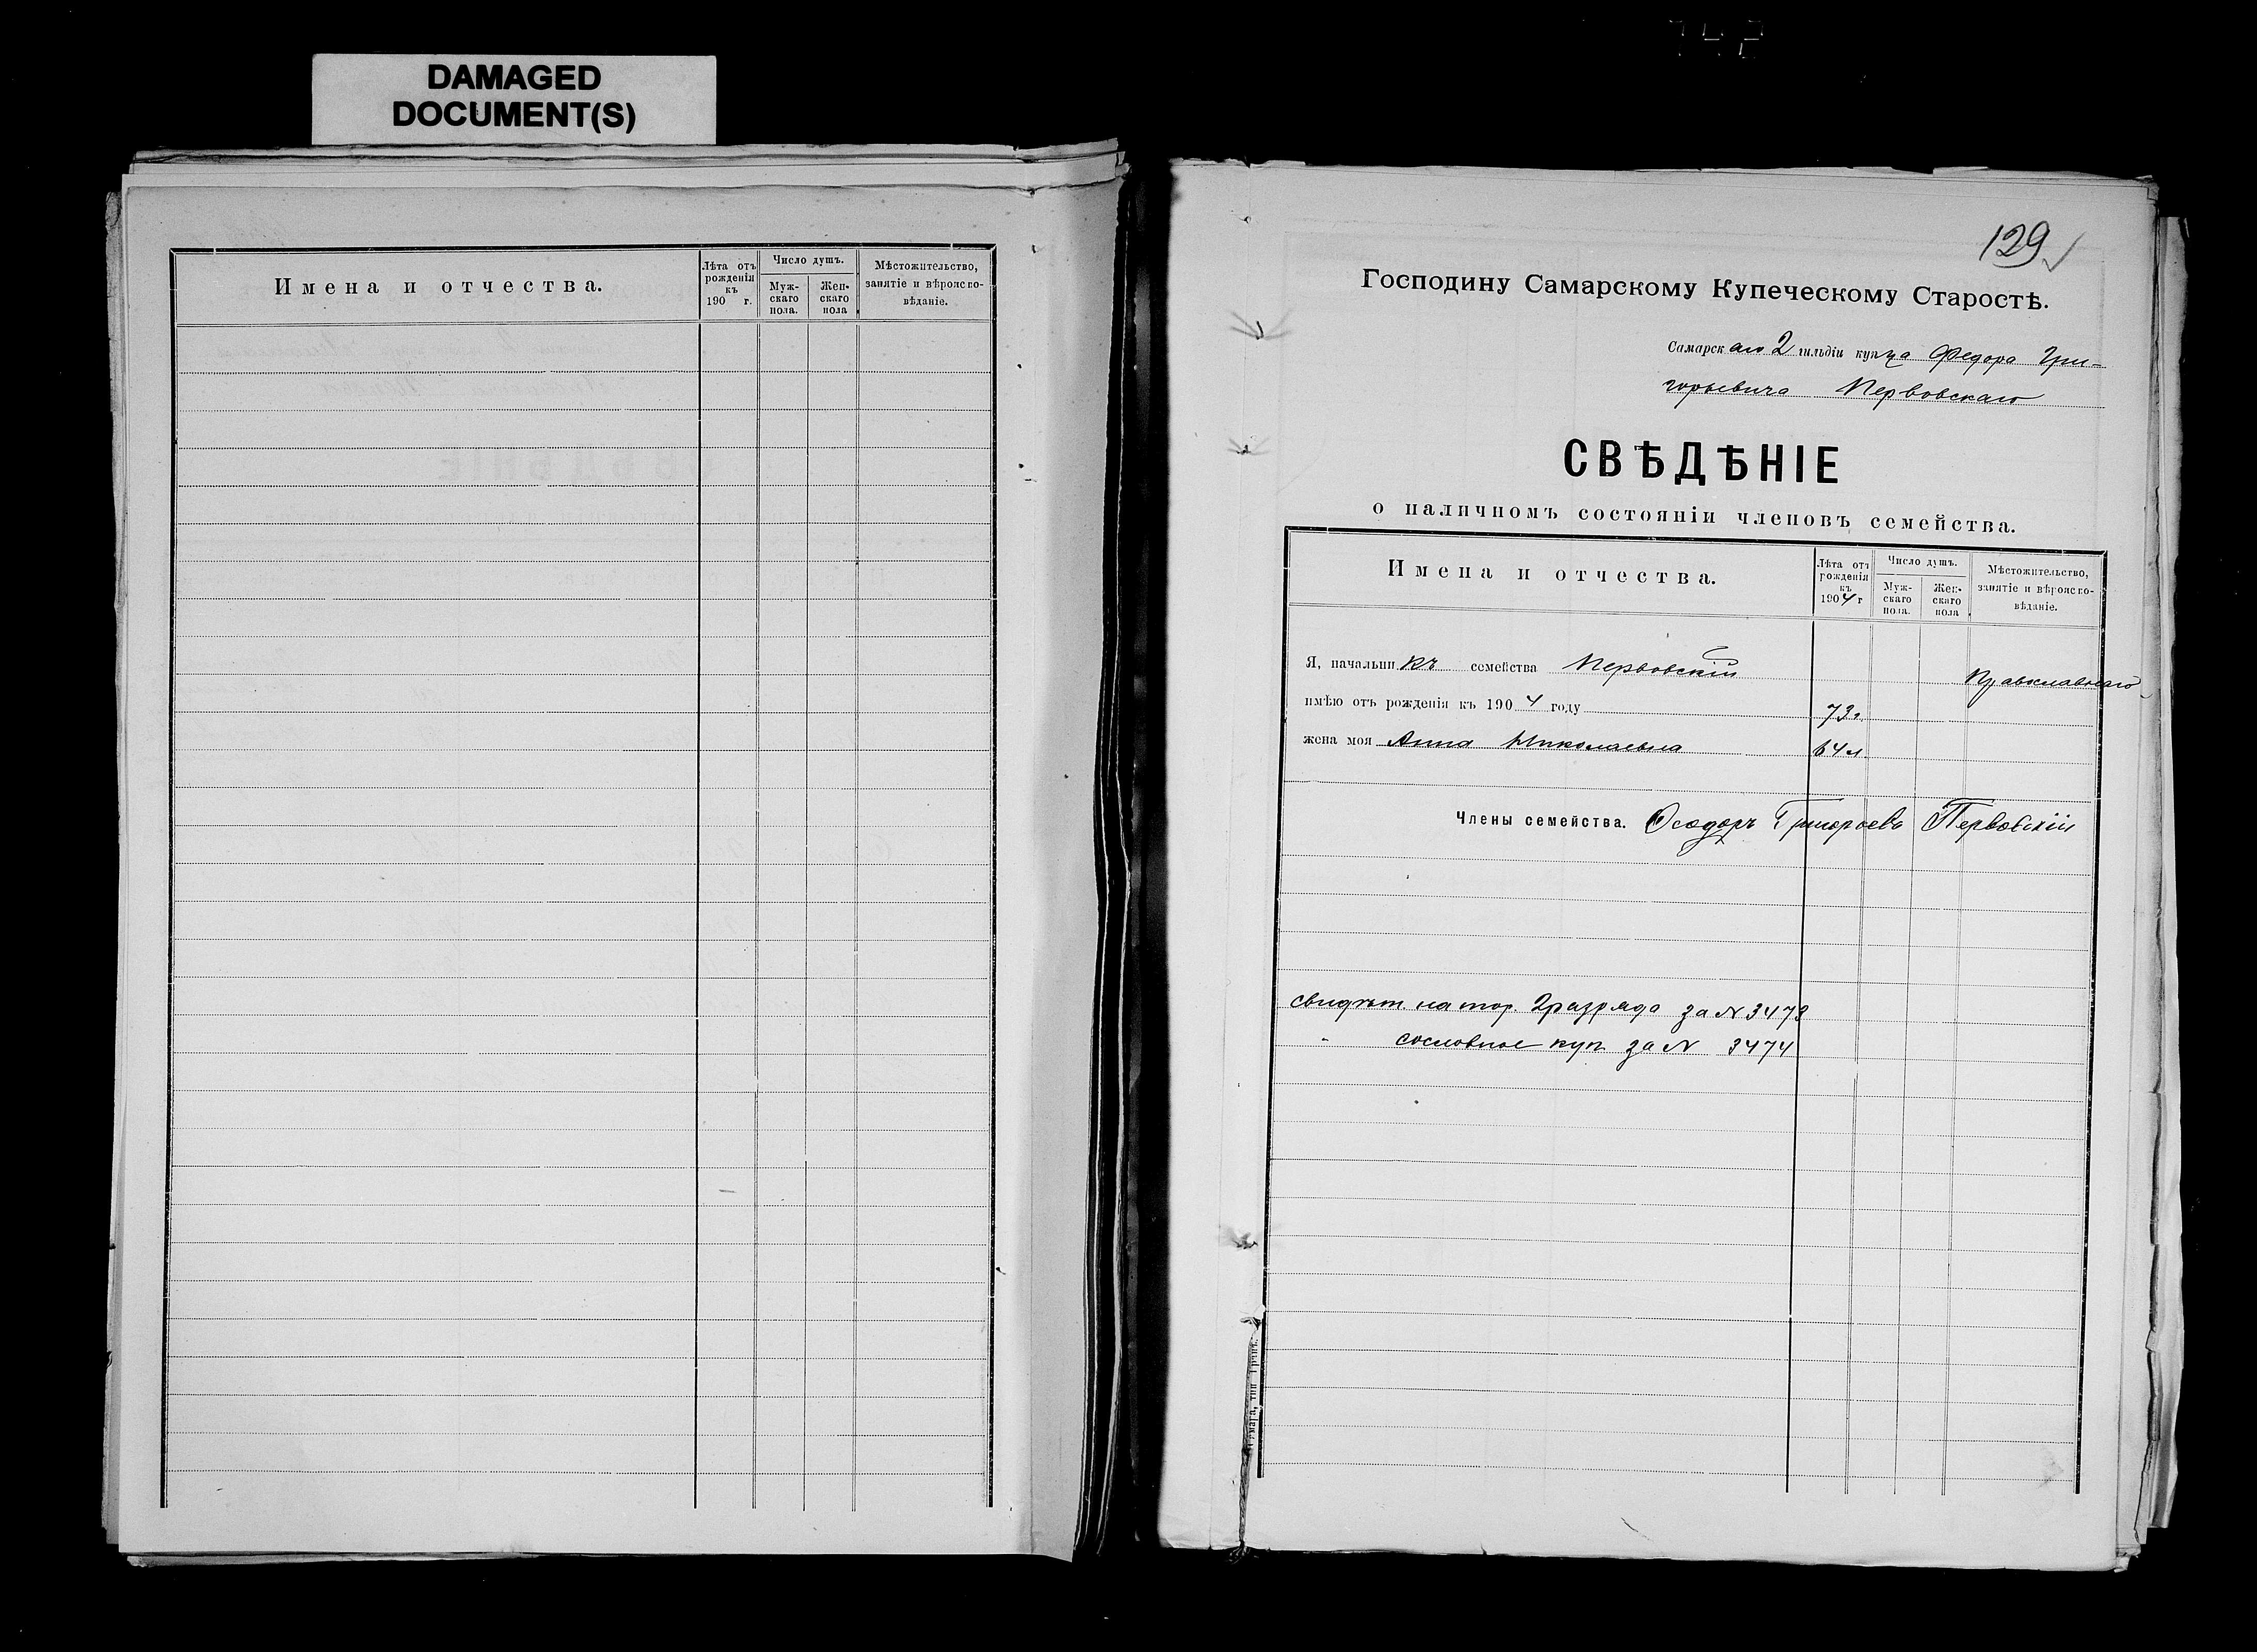 DAMAGED
DOCUMENT(S)
Имена и отчества.
Лѣта отъ рожденія къ 190 г.
Число душъ.
Мужскаго пола.
Женскаго пола
Мѣстожительство, занятіе и вѣроисповѣданіе.
129
Господину Самарскому Купеческому Старостѣ.
Самарскаго 2 гильдіи купца Федора Гри-
горьевича Первовскаго
СВѢДѢНІЕ
о наличномъ состояніи членовъ семейства.
Имена и отчества.
Лѣта отъ рожденія къ 1904 г
Число душъ.
Мужскаго пола.
Женскаго пола
Мѣстожительство, занятіе и вѣроисповѣданіе.
Я, начальникъ семейства Первовскій Православнаго
имѣю отъ рожденія къ 1904 году 73г.
жена моя Анна Николаевна 64л.
Члены семейства. Ѳеодоръ Григорьевъ Первовскій
свидѣт. на тор. 2 разряда за № 3473
" сословное куп. за № 3474
Самара, тип Гран.